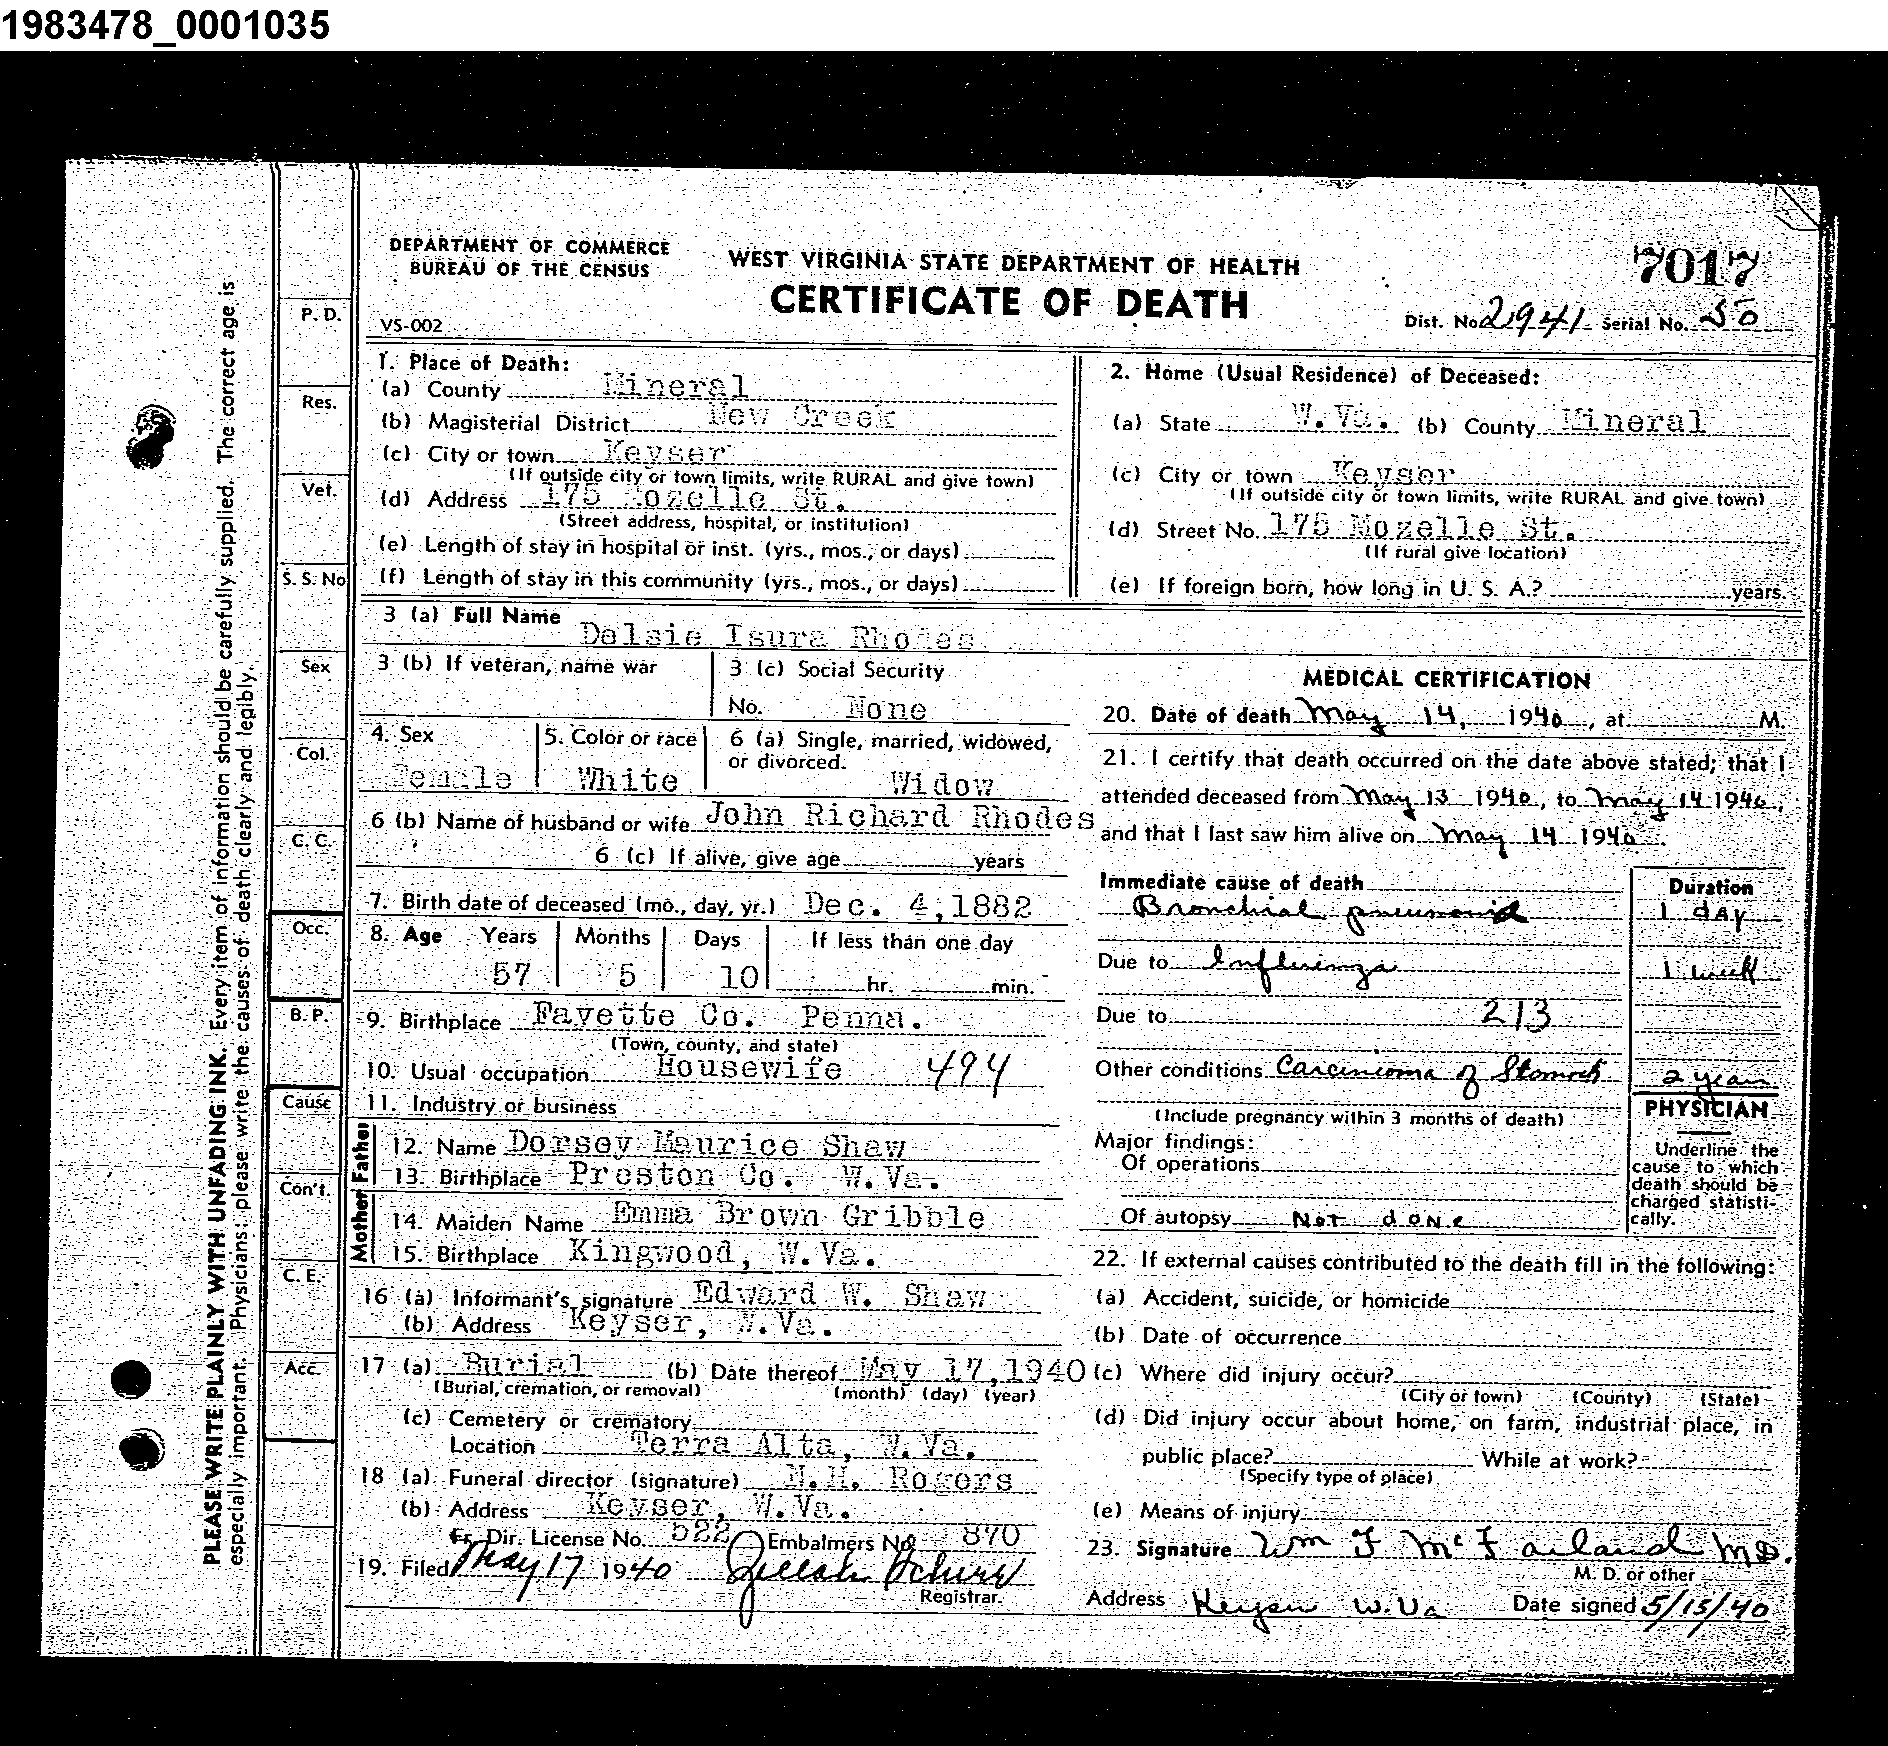 1983478_0001035
DEPARTMENT OF COMMERCE
BUREAU OF THE CENSUS
WEST VIRGINIA STATE DEPARTMENT OF HEALTH
CERTIFICATE OF DEATH
7017
VS-002
Dist. No. 2941 Serial No. 50
PLEASE WRITE PLAINLY WITH UNFADING INK. Every item of information should be carefully supplied. The correct age is
especially important. Physicians: please write the causes of death clearly and legibly.
P. D.
Res.
Vet.
S. S. No
Sex
Col.
C. C.
Occ.
B. P.
Cause
Con't.
C. E.
Acc.
1. Place of Death:
(a) County Mineral
(b) Magisterial District New Creek
(c) City or town Keyser
(If outside city or town limits, write RURAL and give town)
(d) Address 175 Mozelle St.
(Street address, hospital, or institution)
(e) Length of stay in hospital or inst. (yrs., mos., or days)
(f) Length of stay in this community (yrs., mos., or days)
2. Home (Usual Residence) of Deceased:
(a) State W.Va. (b) County Mineral
(c) City or town Keyser
(If outside city or town limits, write RURAL and give town)
(d) Street No. 175 Mozelle St.
(If rural give location)
(e) If foreign born, how long in U. S. A.? years.
3 (a) Full Name Delsie Isura Rhodes
3 (b) If veteran, name war
3 (c) Social Security
No. None
4. Sex Female
5. Color or race White
6 (a) Single, married, widowed,
or divorced. Widow
6 (b) Name of husband or wife John Richard Rhodes
6 (c) If alive, give age years
7. Birth date of deceased (mo., day, yr.) Dec. 4,1882
8. Age Years Months Days If less than one day
57 5 10 hr. min.
9. Birthplace Fayette Co. Penna.
(Town, county, and state)
10. Usual occupation Housewife 494
11. Industry or business
Father
12. Name Dorsey Maurice Shaw
13. Birthplace Preston Co. W.Va.
Mother
14. Maiden Name Emma Brown Gribble
15. Birthplace Kingwood, W.Va.
16 (a) Informant's signature Edward W. Shaw
(b) Address Keyser, W.Va.
17 (a) Burial (b) Date thereof May 17,1940
(Burial, cremation, or removal) (month) (day) (year)
(c) Cemetery or crematory
Location Terra Alta, W.Va.
18 (a) Funeral director (signature) N.H. Rogers
(b) Address Keyser, W.Va.
Fr. Dir. License No. 522 Embalmers No. 870
19. Filed May 17 1940
Registrar.
MEDICAL CERTIFICATION
20. Date of death May 14, 1940, at M.
21. I certify that death occurred on the date above stated; that I
attended deceased from May 13 1940, to May 14 1940,
and that I last saw him alive on May 14 1940.
Immediate cause of death Duration
Bronchial pneumonia 1 day
Due to Influenza 1 week
Due to 213
Other conditions Carcinioma of Stomach 2 years
(Include pregnancy within 3 months of death)
Major findings:
Of operations
Of autopsy Not done
PHYSICIAN
Underline the
cause to which
death should be
charged statisti-
cally.
22. If external causes contributed to the death fill in the following:
(a) Accident, suicide, or homicide
(b) Date of occurrence
(c) Where did injury occur?
(City or town) (County) (State)
(d) Did injury occur about home, on farm, industrial place, in
public place? While at work?
(Specify type of place)
(e) Means of injury
23. Signature Wm F McFarland M.D.
M. D. or other
Address Keyser W.Va Date signed 5/15/40